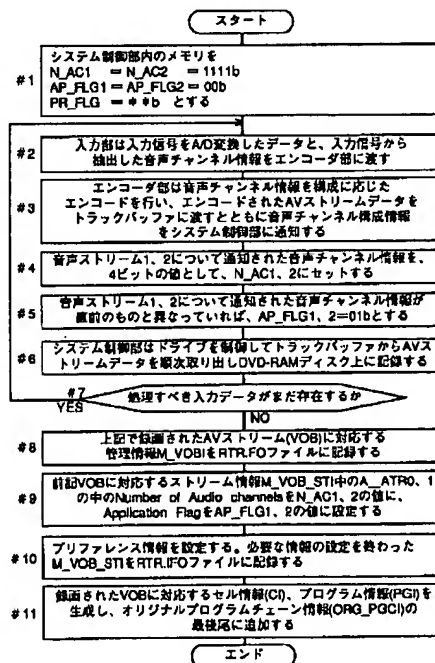 スタート
#1
システム制御部内のメモリを
N_AC1 =N_AC2 =1111b
AP_FLG1=AP_FLG2=00b
PR_FLG =**b とする
#2
入力部は入力信号をA/D変換したデータと、入力信号から
抽出した音声チャンネル情報をエンコーダ部に渡す
#3
エンコーダ部は音声チャンネル情報を構成に応じた
エンコードを行い、エンコードされたAVストリームデータを
トラックバッファに渡すとともに音声チャンネル構成情報
をシステム制御部に通知する
#4
音声ストリーム1、2について通知された音声チャンネル情報を、
4ビットの値として、N_AC1、2にセットする
#5
音声ストリーム1、2について通知された音声チャンネル情報が
直前のものと異なっていれば、AP_FLG1、2=01bとする
#6
システム制御部はドライブを制御してトラックバッファからAVス
トリームデータを順次取り出しDVD-RAMディスク上に記録する
#7
YES
処理すべき入力データがまだ存在するか
NO
#8
上記で録画されたAVストリーム(VOB)に対応する
管理情報M_VOBIをRTR.IFOファイルに記録する
#9
前記VOBに対応するストリーム情報M_VOB_STI中のA_ATR0、1
の中のNumber of Audio channelsをN_AC1、2の値に、
Application FlagをAP_FLG1、2の値に設定する
#10
プリファレンス情報を設定する。必要な情報の設定を終わった
M_VOB_STIをRTR.IFOファイルに記録する
#11
録画されたVOBに対応するセル情報(CI)、プログラム情報(PGI)を
生成し、オリジナルプログラムチェーン情報(ORG_PGCI)の
最後尾に追加する
エンド